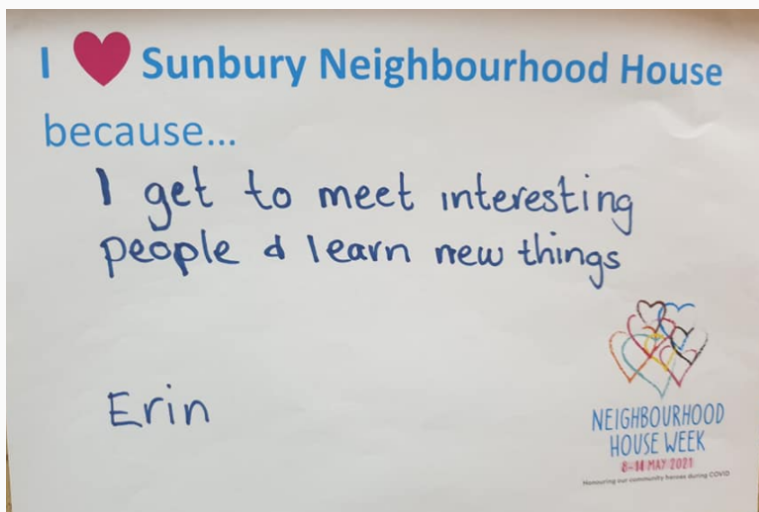 I ❤ Sunbury Neighbourhood House
because...
I get to meet interesting
people & learn new things
Erin
NEIGHBOURHOOD
HOUSE WEEK
8-14 MAY 2021
Honouring our community heroes during COVID